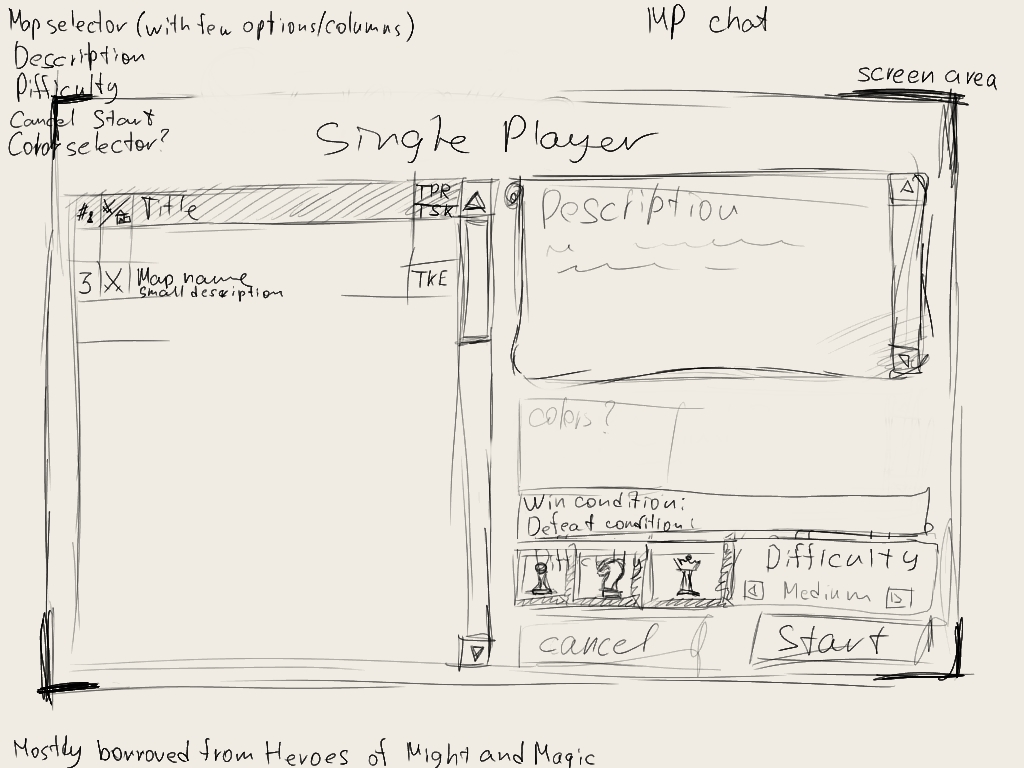 Map selector (with few options/columns)
Description
Difficulty
Cancel Start
Color selector?
MP chat
screen area
Single Player
#
Title
TPR
TSK
3 X Map name
small description
TKE
Description
colors?
Win condition:
Defeat condition:
Difficulty
Difficulty
Medium
cancel
Start
Mostly borroved from Heroes of Might and Magic